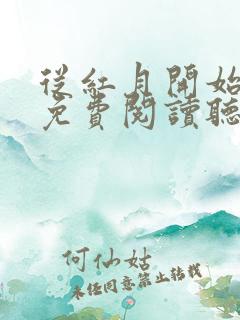 從紅月開始
免費閱讀聽
何仙姑
未经同意禁止转载